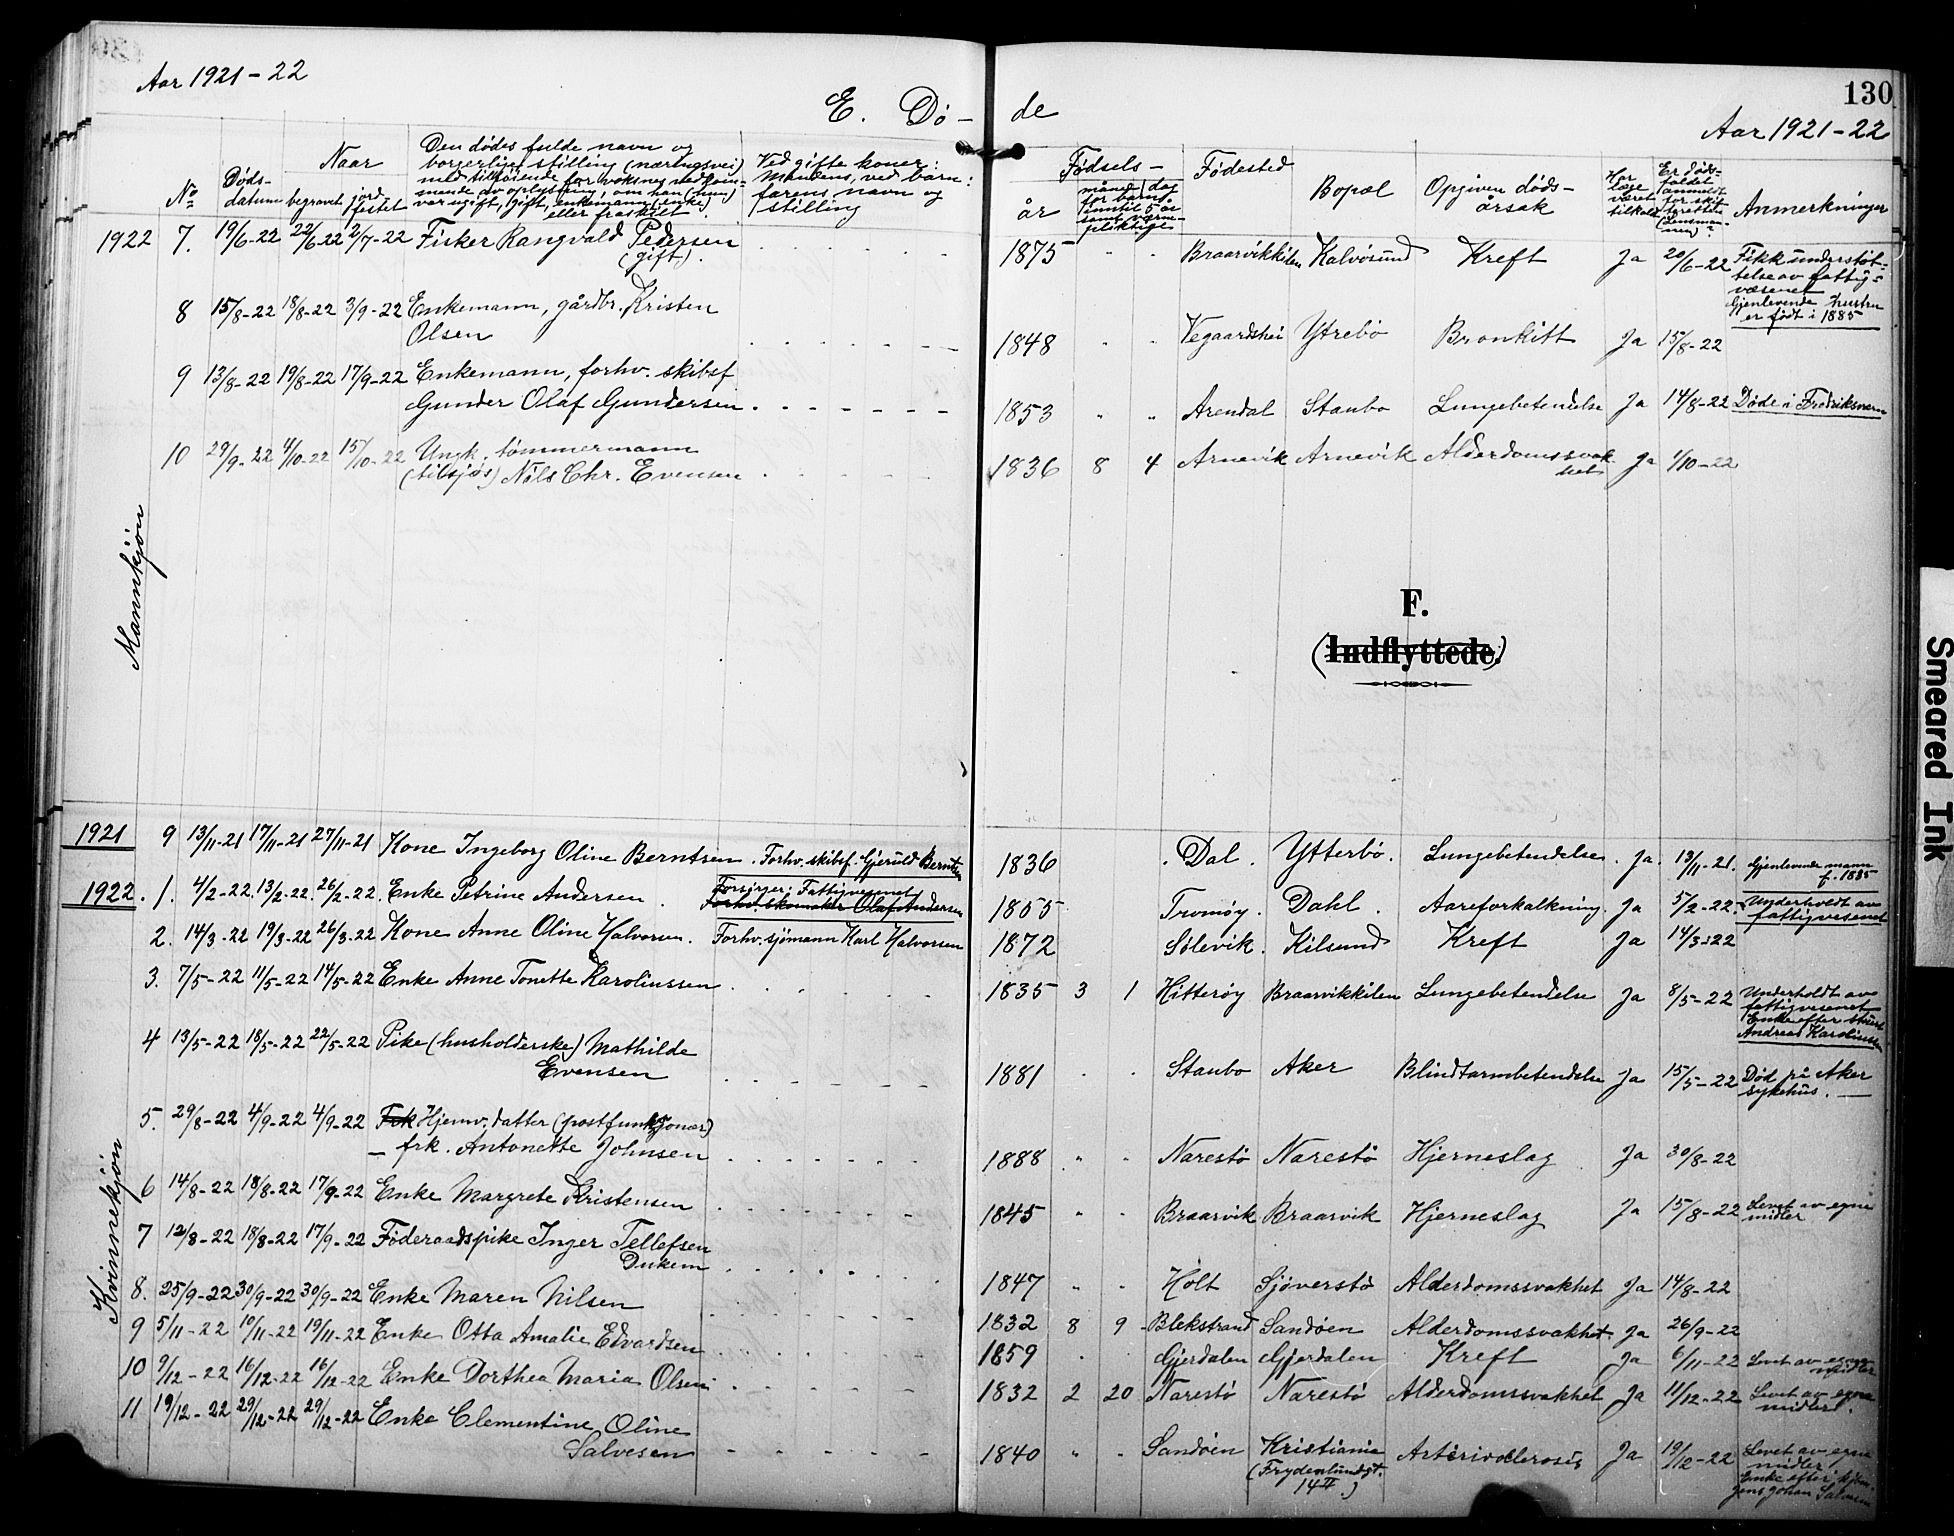 Aar 1921-22
E. Dö-
de
130
Aar 1921-22
No
Døds-
datum
Naar
begravet
jord
festet
Den dødes fulde navn og
borgerlige stilling (næringsvei)
var ugift, gift, enkemann (enke)
eller fraskilt.
Ved gifte koner:
Mandens, ved barn:
farens navn og
stilling
Fødsels-
år
Födested
Bopæl
Opgiven døds-
årsak
Har
læge
været
tilkaldt
Er døds-
faldet
anmeldt
Anmerkninger
1922 7. 19/6-22 22/6-22 2/7-22 Fisker Rangvald Pedersen
(gift).
1875 " " Braarvikkilen Kalvøsund Kreft Ja 20/6-22 Fikk understøt-
telse av fattig-
væsenet
Gjenlevende hustru
er født i 1885
8 15/8-22 18/8-22 3/9-22 Enkemann, gårdbr. Kristen
Olsen
1848 " " Vegaardshei Ytrebö Bronkitt Ja 15/8-22
9 13/8-22 19/8-22 17/9-22 Enkemann, forhv. skibsf
Gunder Olaf Gundersen
1853 " " Arendal Staubo Lungebetendelse Ja 14/8-22 Døde i Fredriksvern
10 29/9-22 4/10-22 15/10-22 Ungk. tømmermann
(tilsjøs) Nils Chr. Evensen
1836 8 4 Arnevik Arnevik Alderdomssvak
het Ja 1/10-22
Mannkjøn
F.
(Indflyttede.)
1921 9 13/11-21 17/11-21 27/11-21 Kone Ingeborg Oline Berntsen. Forhv. skibsf. Gjeruld Berntsen
1836 Dal. Ytterbö. Lungebetendelse. Ja. 13/11-21. Gjenlevende mann
f. 1835
1922. 1. 4/2-22. 13/2-22. 26/2-22. Enke Petrine Andersen. Forsörger: Fattigvesenet
Forhv. skomaker Olaf Andersen
1855 Tromøy. Dahl. Aareforkalkning. Ja 5/2-22. Underholdt av
fattigvesenet
2. 14/3-22 19/3-22 26/3-22 Kone Anne Oline Halvorsen. Forhv. sjømann Karl Halvorsen
1872 Sølevik. Kilsund Kreft Ja 14/3-22
3. 7/5-22 11/5-22 14/5-22 Enke Anne Tonette Karoliussen
1835 3 1 Hitterøy Braarvikkilen Lungebetendelse Ja 8/5-22 Underholdt av
fattigvesenet
Enke efter
Andreas Karoliussen
4 13/5-22 18/5-22 22/5-22 Pike (husholderske) Mathilde
Evensen
1881 Staubo Aker Blindtarmbetendelse Ja 15/5-22 Död på Aker
sykehus.
5. 29/8-22 4/9-22 4/9-22 Frk Hjemv. datter (postfunksjonær)
- frk. Antonette Johnsen
1888 " " Narestö Narestö Hjerneslag Ja 30/8-22
6 14/8-22 18/8-22 17/9-22 Enke Margrete Kristensen
1845 " " Braarvik Braarvik Hjerneslag Ja 15/8-22 Levet av egne
midler
7 12/8-22 18/8-22 17/9-22 Föderaadspike Inger Tellefsen
Dukem
1847 " " Holt Sjöverstö Alderdomssvakhet Ja 14/8-22
8. 25/9-22 30/9-22 30/9-22 Enke Maren Nilsen
1832 8 9 Blekstrand Sandöen Alderdomssvakhet Ja 26/9-22
9 5/11-22 10/11-22 19/11-22 Enke Otta Amalie Edvardsen
1859 Gjerdalen Gjerdalen Kreft Ja 6/11-22 Levet av egne
midler
10 9/12-22 16/12-22 16/12-22 Enke Dorthea Maria Olsen
1832 2 20 Narestö Narestö Alderdomssvakhet Ja 11/12-22 Levet av egne
midler.
11 19/12-22 29/12-22 29/12-22 Enke Clementine Oline
Salvesen
1840 " " Sandöen Kristiania
(Frydenlundgt.
14 II.) Arteriosclerosis Ja 19/12-22 Levet av egne
midler
Enke efter
Johan Salvesen
Kvinnekjøn
Smeared Ink